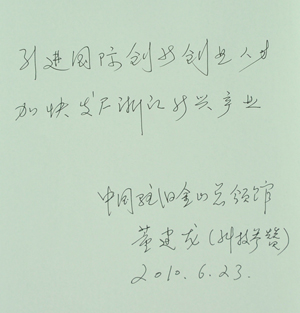 引进国际创新创业人才
加快发展浙江新兴产业
中国驻旧金山总领馆
董建龙(科技参赞)
2010.6.23.